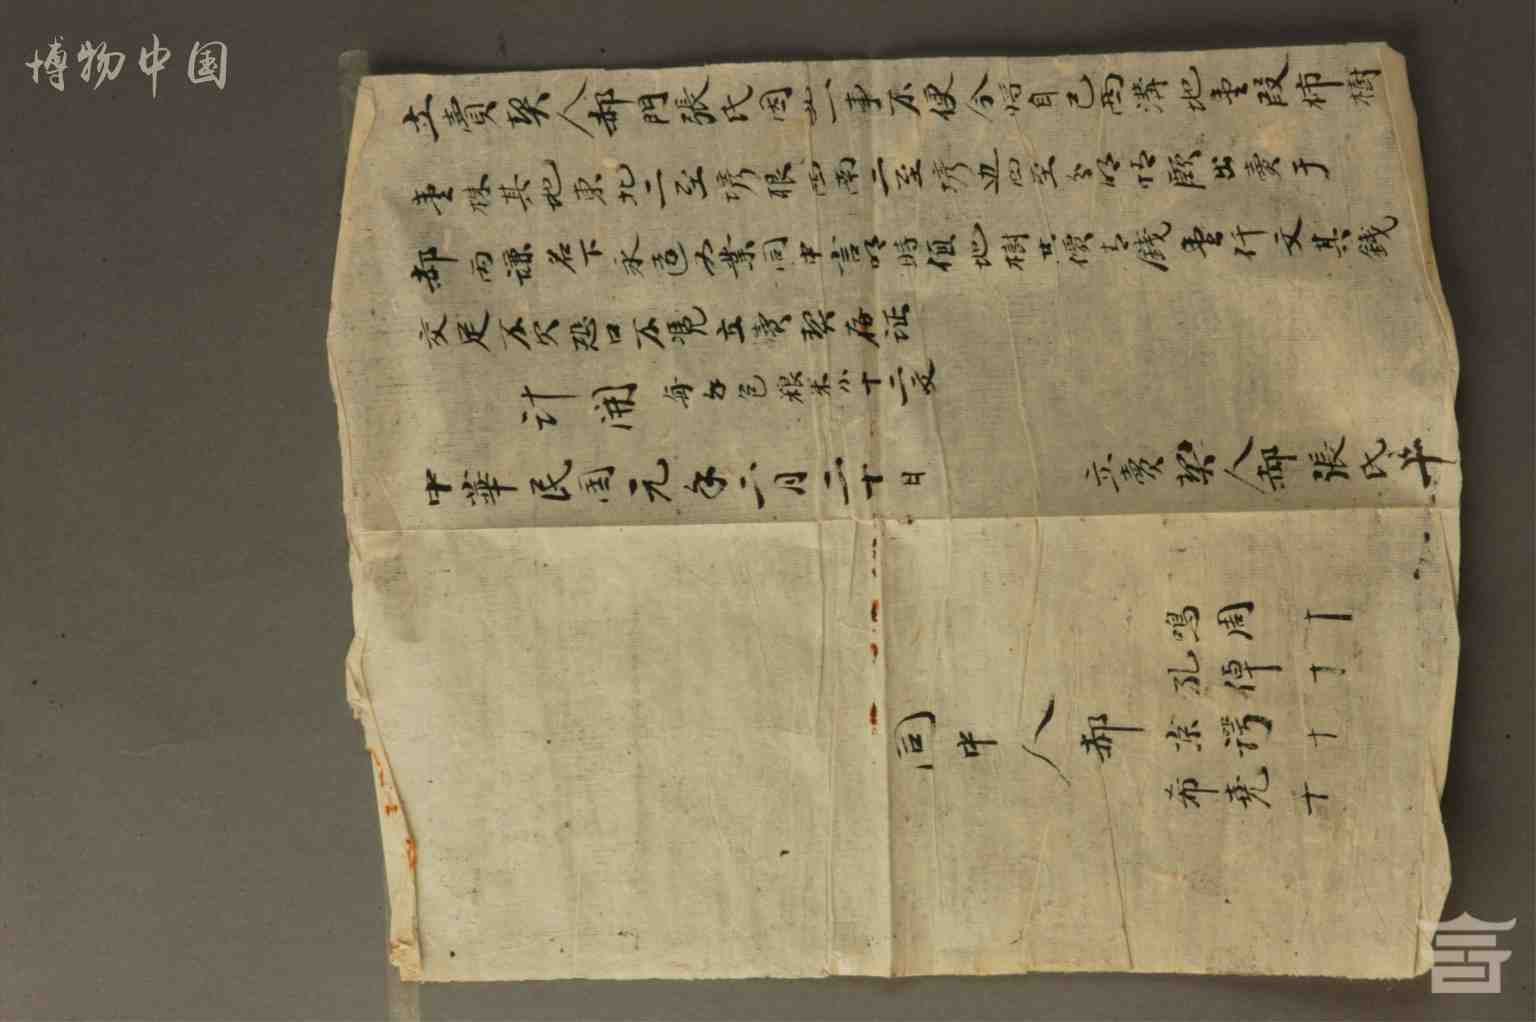 博物中国
立賣契人郝門張氏因 一事不便今將自己西溝地壹段柿樹
壹株其地東北二至塄根西南二至塄邊四至分明 出賣于
郝丙謙名下永遠為業同中言明時值地樹共價 錢壹仟文其錢
交足不欠恐口不憑立賣契存證
計開 每年包粮米小十二文
中華民國元年二月二十日
立賣契人郝張氏 十
同中人郝
鳴周 十
孔倬 十
京 十
希堯 十